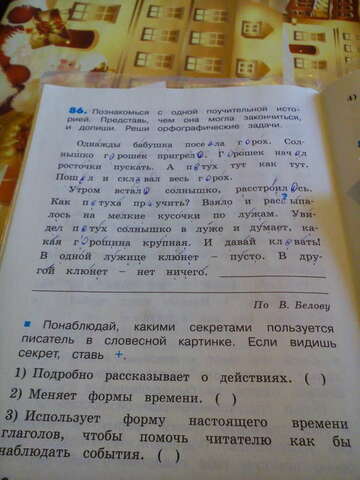 86. Познакомься с одной поучительной исто-
рией. Представь, чем она могла закончиться,
и допиши. Реши орфографические задачи.
Однажды бабушка посеяла горох. Сол-
нышко горошек пригрело. Горошек начал
росточки пускать. А петух тут как тут.
Пошёл и склевал весь горох.
Утром встало солнышко, расстроилось.
Как петуха проучить? Взяло и рассыпа-
лось на мелкие кусочки по лужам. Уви-
дел петух солнышко в луже и думает, ка-
кая горошина крупная. И давай клевать!
В одной лужице клюнет – пусто. В дру-
гой клюнет – нет ничего.
По В. Белову
Понаблюдай, какими секретами пользуется
писатель в словесной картинке. Если видишь
секрет, ставь +.
1) Подробно рассказывает о действиях. ( )
2) Меняет формы времени. ( )
3) Использует форму настоящего времени
глаголов, чтобы помочь читателю как бы
наблюдать события. ( )